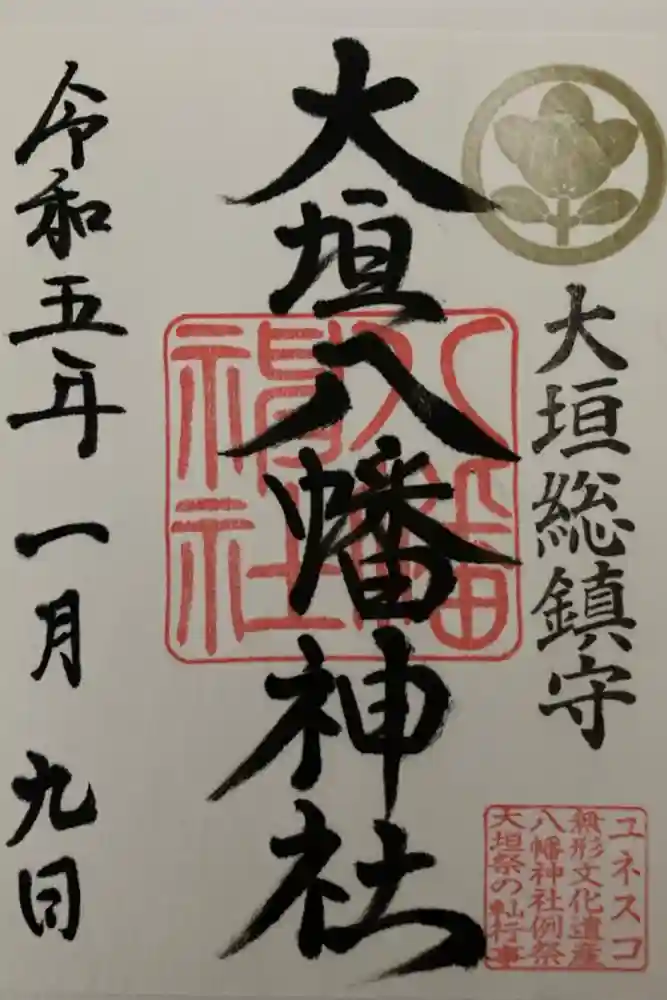 大垣総鎮守
大垣八幡神社
八幡神社
令和五年一月九日
ユネスコ
無形文化遺産
八幡神社例祭
大垣祭の軕行事